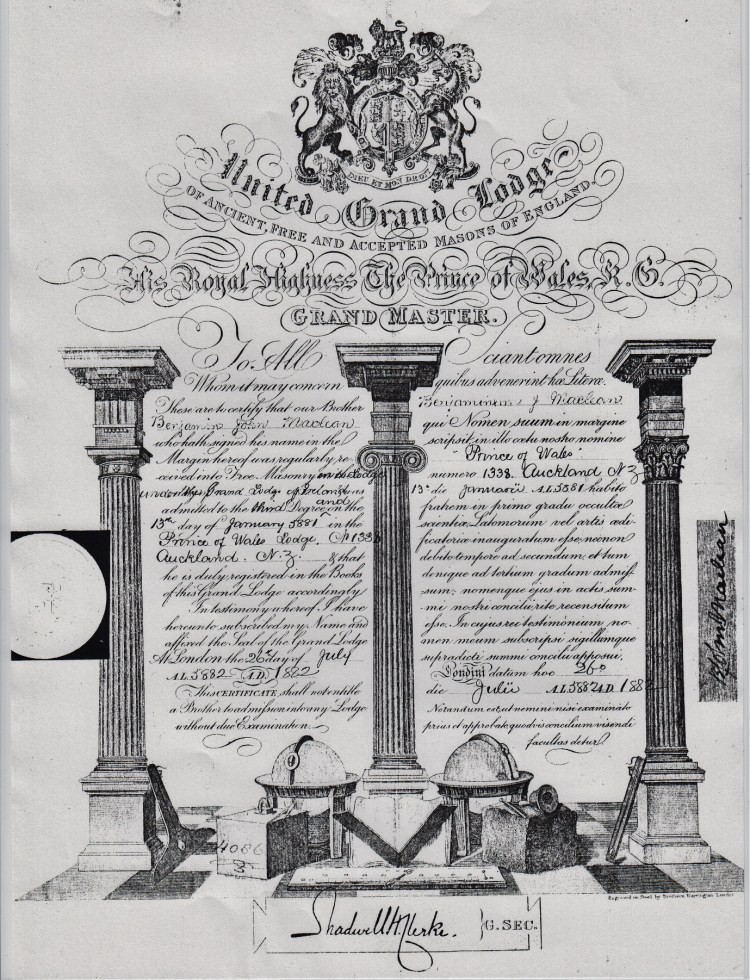 DIEU ET MON DROIT
United Grand Lodge
OF ANCIENT, FREE AND ACCEPTED MASONS OF ENGLAND.
His Royal Highness The Prince of Wales, K. G.
GRAND MASTER.
To All
Whom it may concern
These are to certify that our Brother
Benjamin John Maclean
who hath signed his name in the
Margin hereof was regularly re-
ceived into Free Masonry in the Lodge
under the Grand Lodge of and was
admitted to the third Degree on the
13th day of January 5881 in the
Prince of Wales Lodge, No 1338
Auckland. N.Z. & that
he is duly registered in the Books
of this Grand Lodge accordingly
In testimony whereof I have
hereunto subscribed my Name and
affixed the Seal of the Grand Lodge
At London the 26th day of July
A.L. 5882 A.D. 1882
This CERTIFICATE shall not entitle
a Brother to admission into any Lodge
without due Examination.
Sciant omnes
quibus advenerint hæ Literæ.
Benjaminus J Maclean
qui Nomen suum in margine
scripsit in illo cœtu nostro nomine
"Prince of Wales"
numero 1338 Auckland N Z
13o die Januarii A.L. 5881 habito
fratrem in primo gradu occultæ
scientiæ Latomorum vel artis ædi-
ficatoriæ inauguratum esse, necnon
debito tempore ad secundum, et tum
denique ad tertium gradum admis-
sum; nomenque ejus in actis sum-
mi nostri concilii rite recensitum
esse. In cujus rei testimonium no-
men meum subscripsi sigillumque
supradicti summi concilii apposui.
Londini datum hoc 26o
die Julii A.L. 5882 A.D. 1882
Notandum est, ut nemini nisi examinato
prius et approbato quodvis concilium visendi
facultas detur.
Jno Maclean
4086
Engraved on Steel by Brothers Harrington London
Shadwell H Clerke. G. SEC.